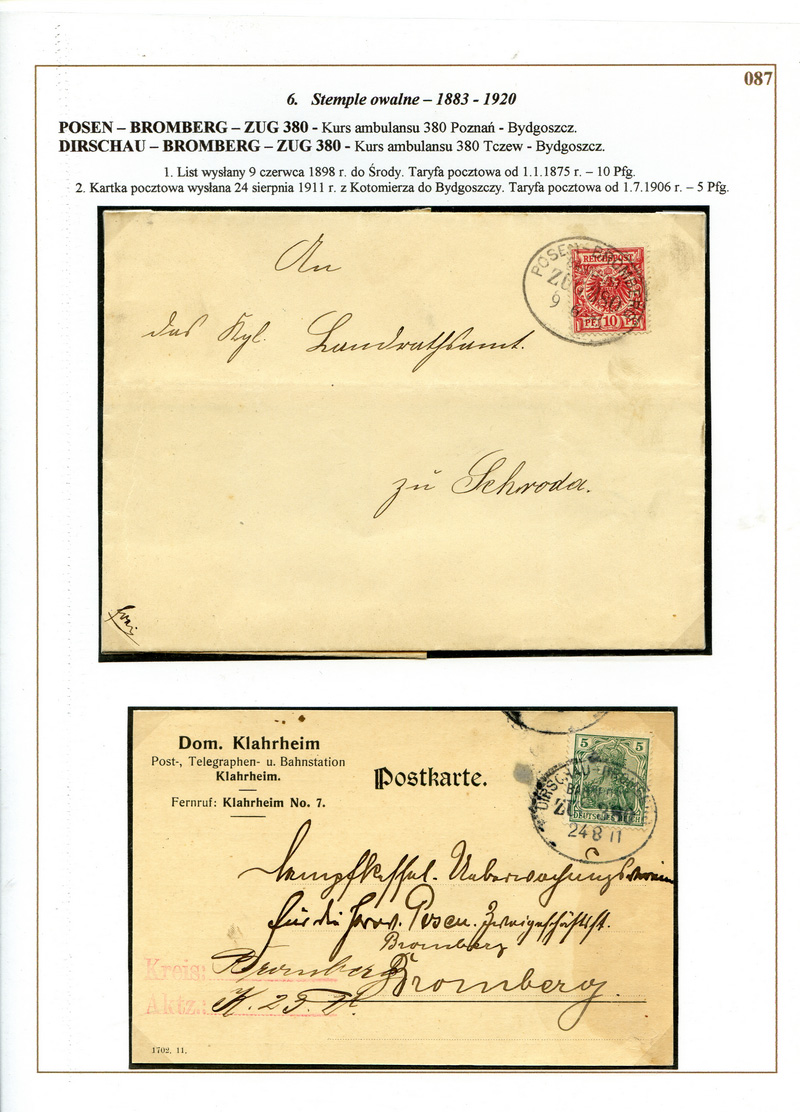 087
6. Stemple owalne – 1883 - 1920
POSEN – BROMBERG – ZUG 380 - Kurs ambulansu 380 Poznań - Bydgoszcz.
DIRSCHAU – BROMBERG – ZUG 380 - Kurs ambulansu 380 Tczew - Bydgoszcz.
1. List wysłany 9 czerwca 1898 r. do Środy. Taryfa pocztowa od 1.1.1875 r. – 10 Pfg.
2. Kartka pocztowa wysłana 24 sierpnia 1911 r. z Kotomierza do Bydgoszczy. Taryfa pocztowa od 1.7.1906 r. – 5 Pfg.
An
POSEN - BROMBERG
ZUG 380
9 6
REICHSPOST
PF 10 PF
das Kgl. Landrathsamt.
zu Schroda.
Dom. Klahrheim
Post-, Telegraphen- u. Bahnstation
Klahrheim.
Fernruf: Klahrheim No. 7.
Postkarte.
5 5
DEUTSCHES REICH
DIRSCHAU - BROMBERG
BAHNPOST
ZUG 380
24 8 11
Dampfkessel. Ueberwachungsverein
für die Prov. Posen. Zweigeschäftsst.
Bromberg
Bromberg.
Kreis: Bromberg
Aktz.:
1702. 11.